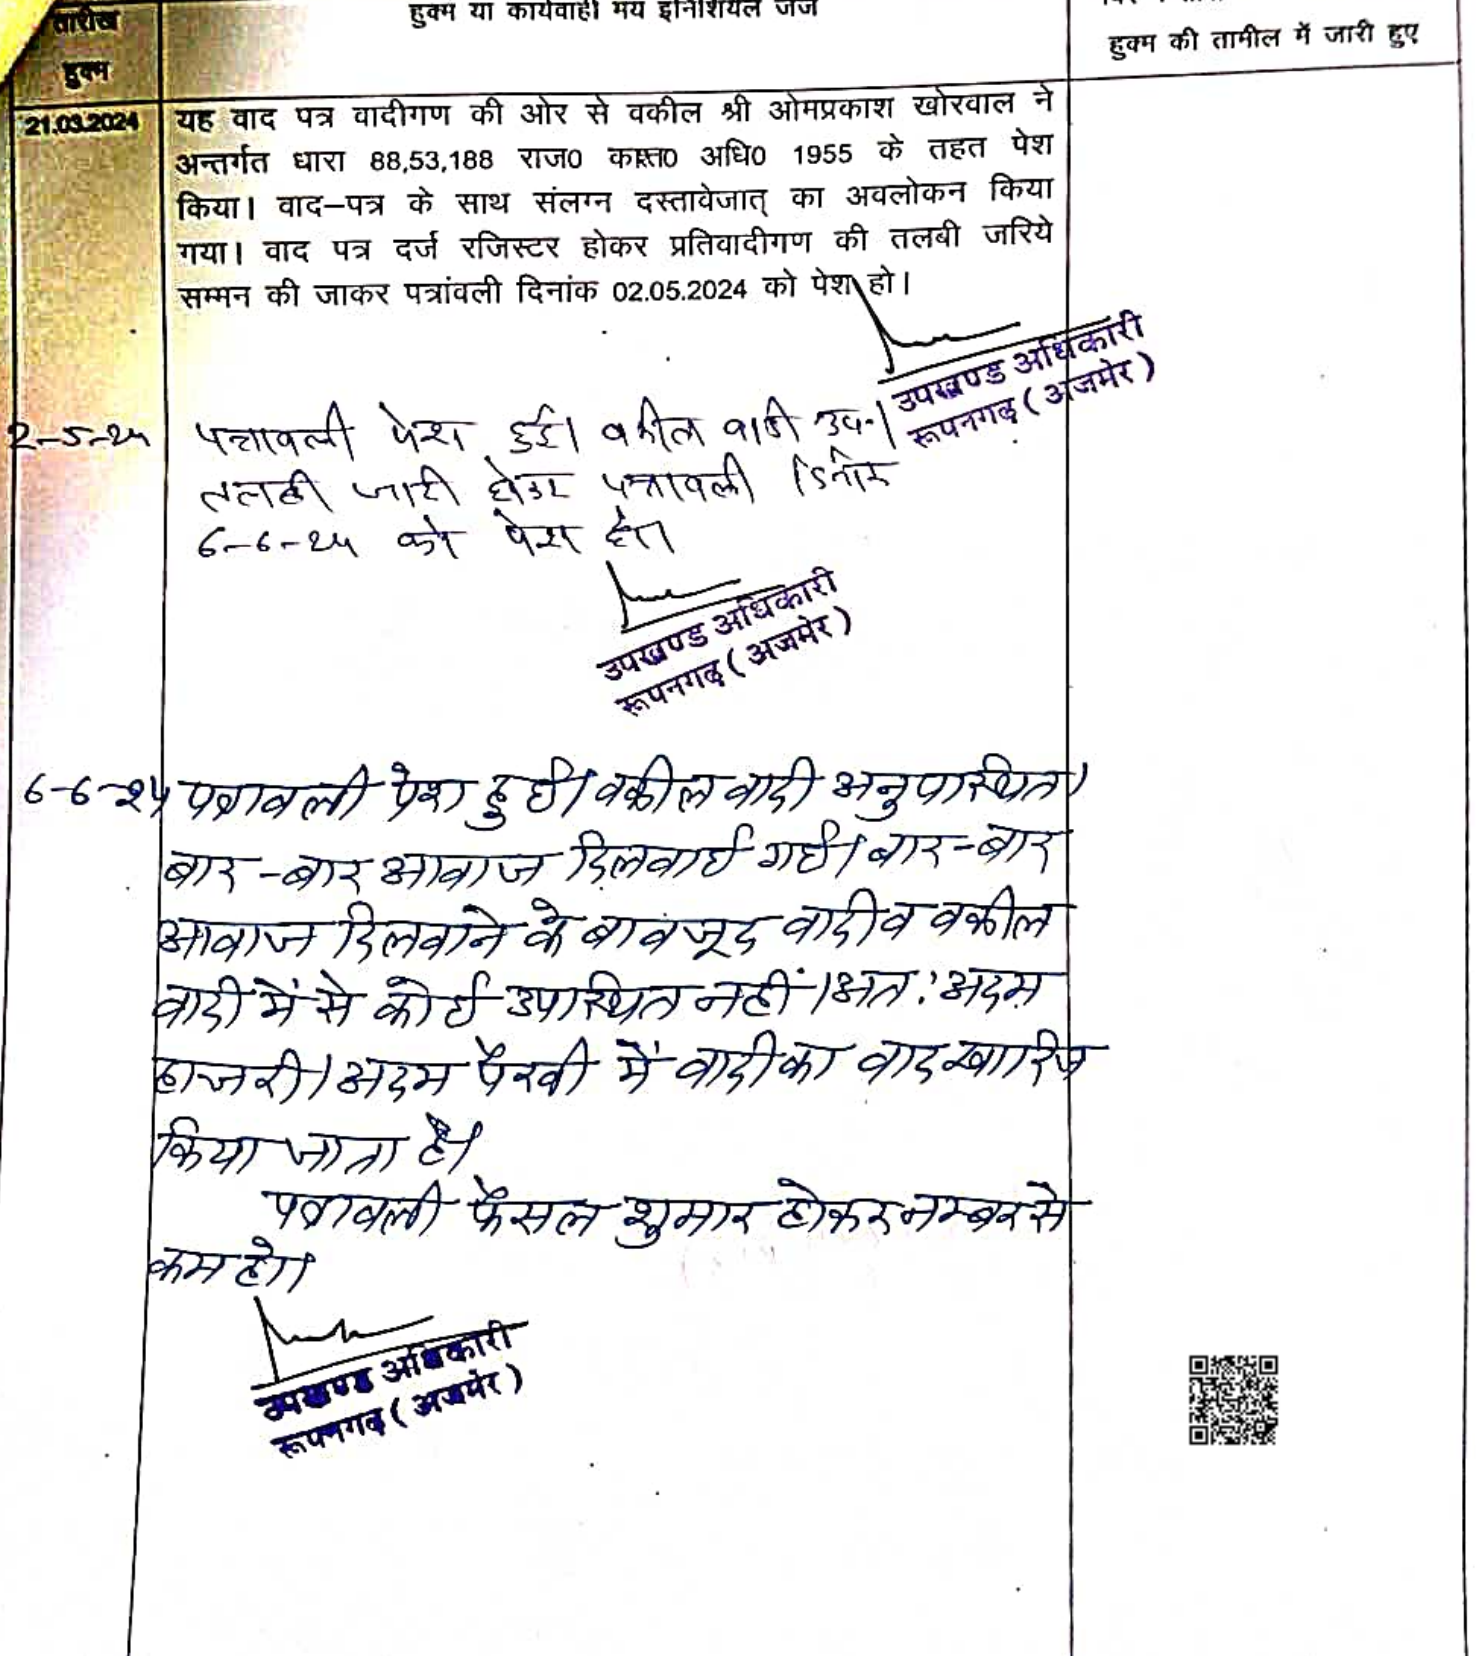 तारीख
हुक्म
हुक्म या कार्यवाही मय इनिशियल जज
हुक्म की तामील में जारी हुए
21.03.2024
यह वाद पत्र वादीगण की ओर से वकील श्री ओमप्रकाश खोरवाल ने
अन्तर्गत धारा 88,53,188 राज0 कास्त0 अधि0 1955 के तहत पेश
किया। वाद–पत्र के साथ संलग्न दस्तावेजात् का अवलोकन किया
गया। वाद पत्र दर्ज रजिस्टर होकर प्रतिवादीगण की तलबी जरिये
सम्मन की जाकर पत्रांवली दिनांक 02.05.2024 को पेश हो।
उपखण्ड अधिकारी
रूपनगढ़ (अजमेर)
2-5-24
पत्रावली पेश हुई। वकील वादी उप.।
तलबी जारी होकर पत्रावली दिनांक
6-6-24 को पेश हो।
उपखण्ड अधिकारी
रूपनगढ़ (अजमेर)
6-6-24
पत्रावली पेश हुई। वकील वादी अनुपस्थित।
बार-बार आवाज दिलवाई गई। बार-बार
आवाज दिलवाने के बावजूद वादी व वकील
वादी में से कोई उपस्थित नहीं। अतः अदम
हाजरी/अदम पैरवी में वादी का वाद खारिज
किया जाता है।
पत्रावली फैसल शुमार होकर नम्बर से
कम हो।
उपखण्ड अधिकारी
रूपनगढ़ (अजमेर)